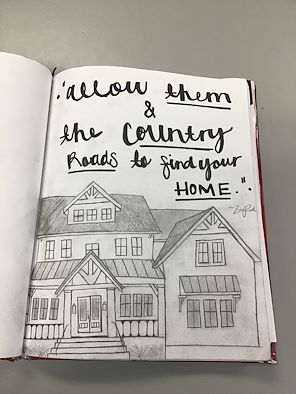 :"allow them
&
the Country
Roads to find your
HOME.":